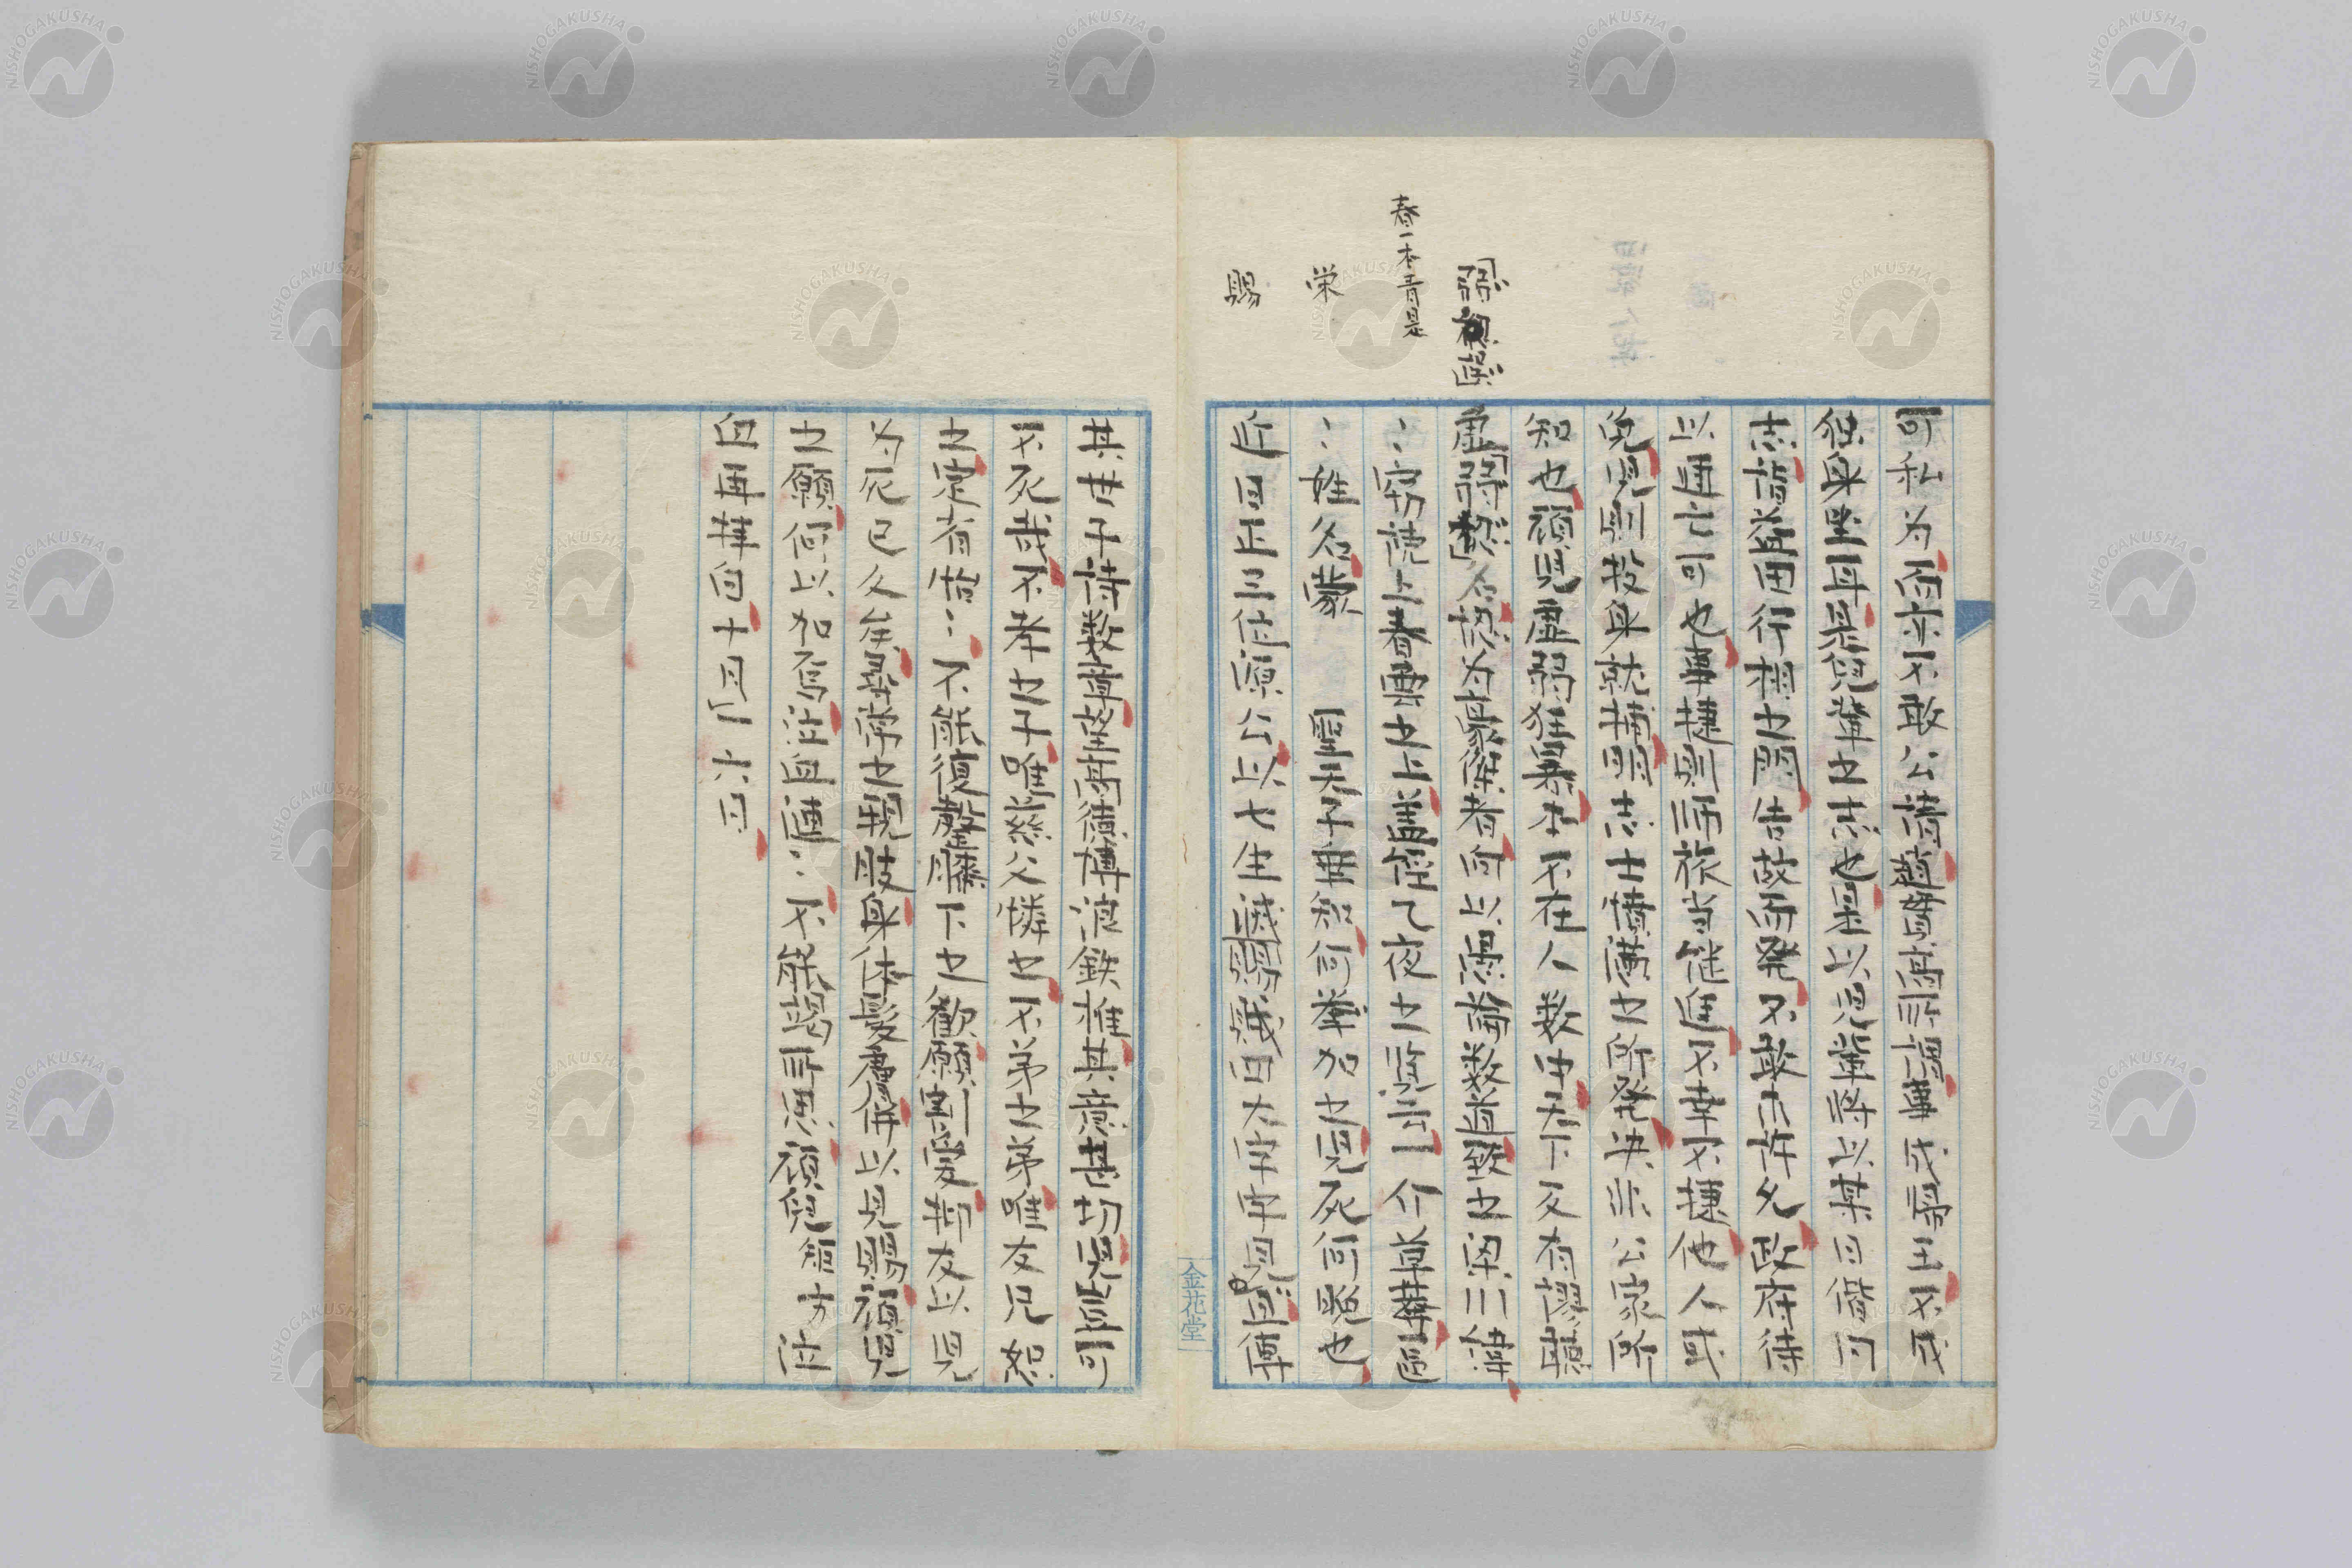 弱[]
春一本青是
栄
賜
可私為而亦不敢公請趙貫高所謂事成帰王不成
独身坐耳是児輩之志也是以児輩将以某日偕同
志詣益田行相之門告故而発不敢亡許允政府待
以逋亡可也事捷則師旅当継進不幸不捷他人或
免児則投身就捕明志士憤懣之所発決非公家所
知也顧児虚弱狂暴本不在人数中天下又有謬聴
虚弱名認為豪傑者向以愚論数道致之梁川緯
〻窃読上春雲之上蓋経乙夜之覧云一介草莽區
〻姓名蒙 聖天子垂知何栄加之児死何憾也
近日正三位源公以七生滅賊大字
其世子詩数章望高徳博浪鉄椎其意甚切児豈可
不死哉不孝之子唯慈父憐之不弟之弟唯友兄恕
之定省怡〻不能復膝下也歓願割愛抑友以児
為死已久矣尋常之身体髪膚併以見賜顧児
之願何以加焉泣血漣〻不能竭所思頑児矩方泣
血再拝白十月十六日
金花堂